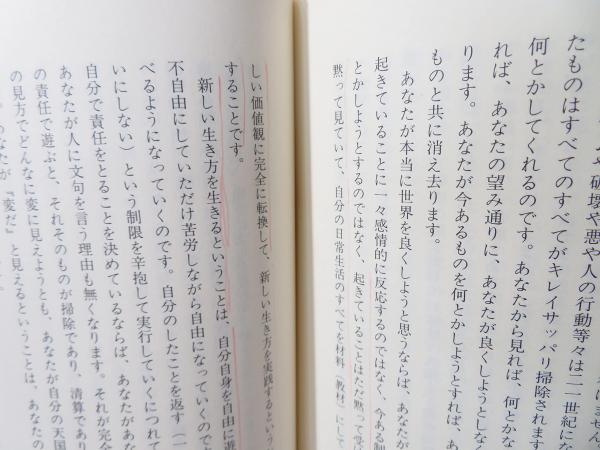 や破壊や悪や人の行動等々は二一世紀にな
たものはすべてのすべてがキレイサッパリ掃除されます
何とかしてくれるのです。あなたから見れば、何とかな
れば、あなたの望み通りに、あなたが良くしようとしなく
ります。あなたが今あるものを何とかしようとすれば、あ
ものと共に消え去ります。
あなたが本当に世界を良くしようと思うならば、あなたが
起きていることに一々感情的に反応するのではなく、今ある制
とかしようとするのではなく、起きていることはただ黙って受け
黙って見ていて、自分の日常生活のすべてを材料(教材)にして
しい価値観に完全に転換して、新しい生き方を実践するという
することです。
新しい生き方を生きるということは、自分自身を自由に遊
不自由にしていただけ苦労しながら自由になっていくので
べるようになっていくのです。自分のしたことを返す(一
いにしない)という制限を辛抱して実行していくにつれて
自分で責任をとることを決めているならば、あなたがあな
あなたが人に文句を言う理由も無くなります。それが完全
の責任で遊ぶと、それそのものが掃除であり、清算であり
の見方でどんなに変に見えようとも、あなたが自分の天国
あなたが『変だ』と見えるということは、あなたの